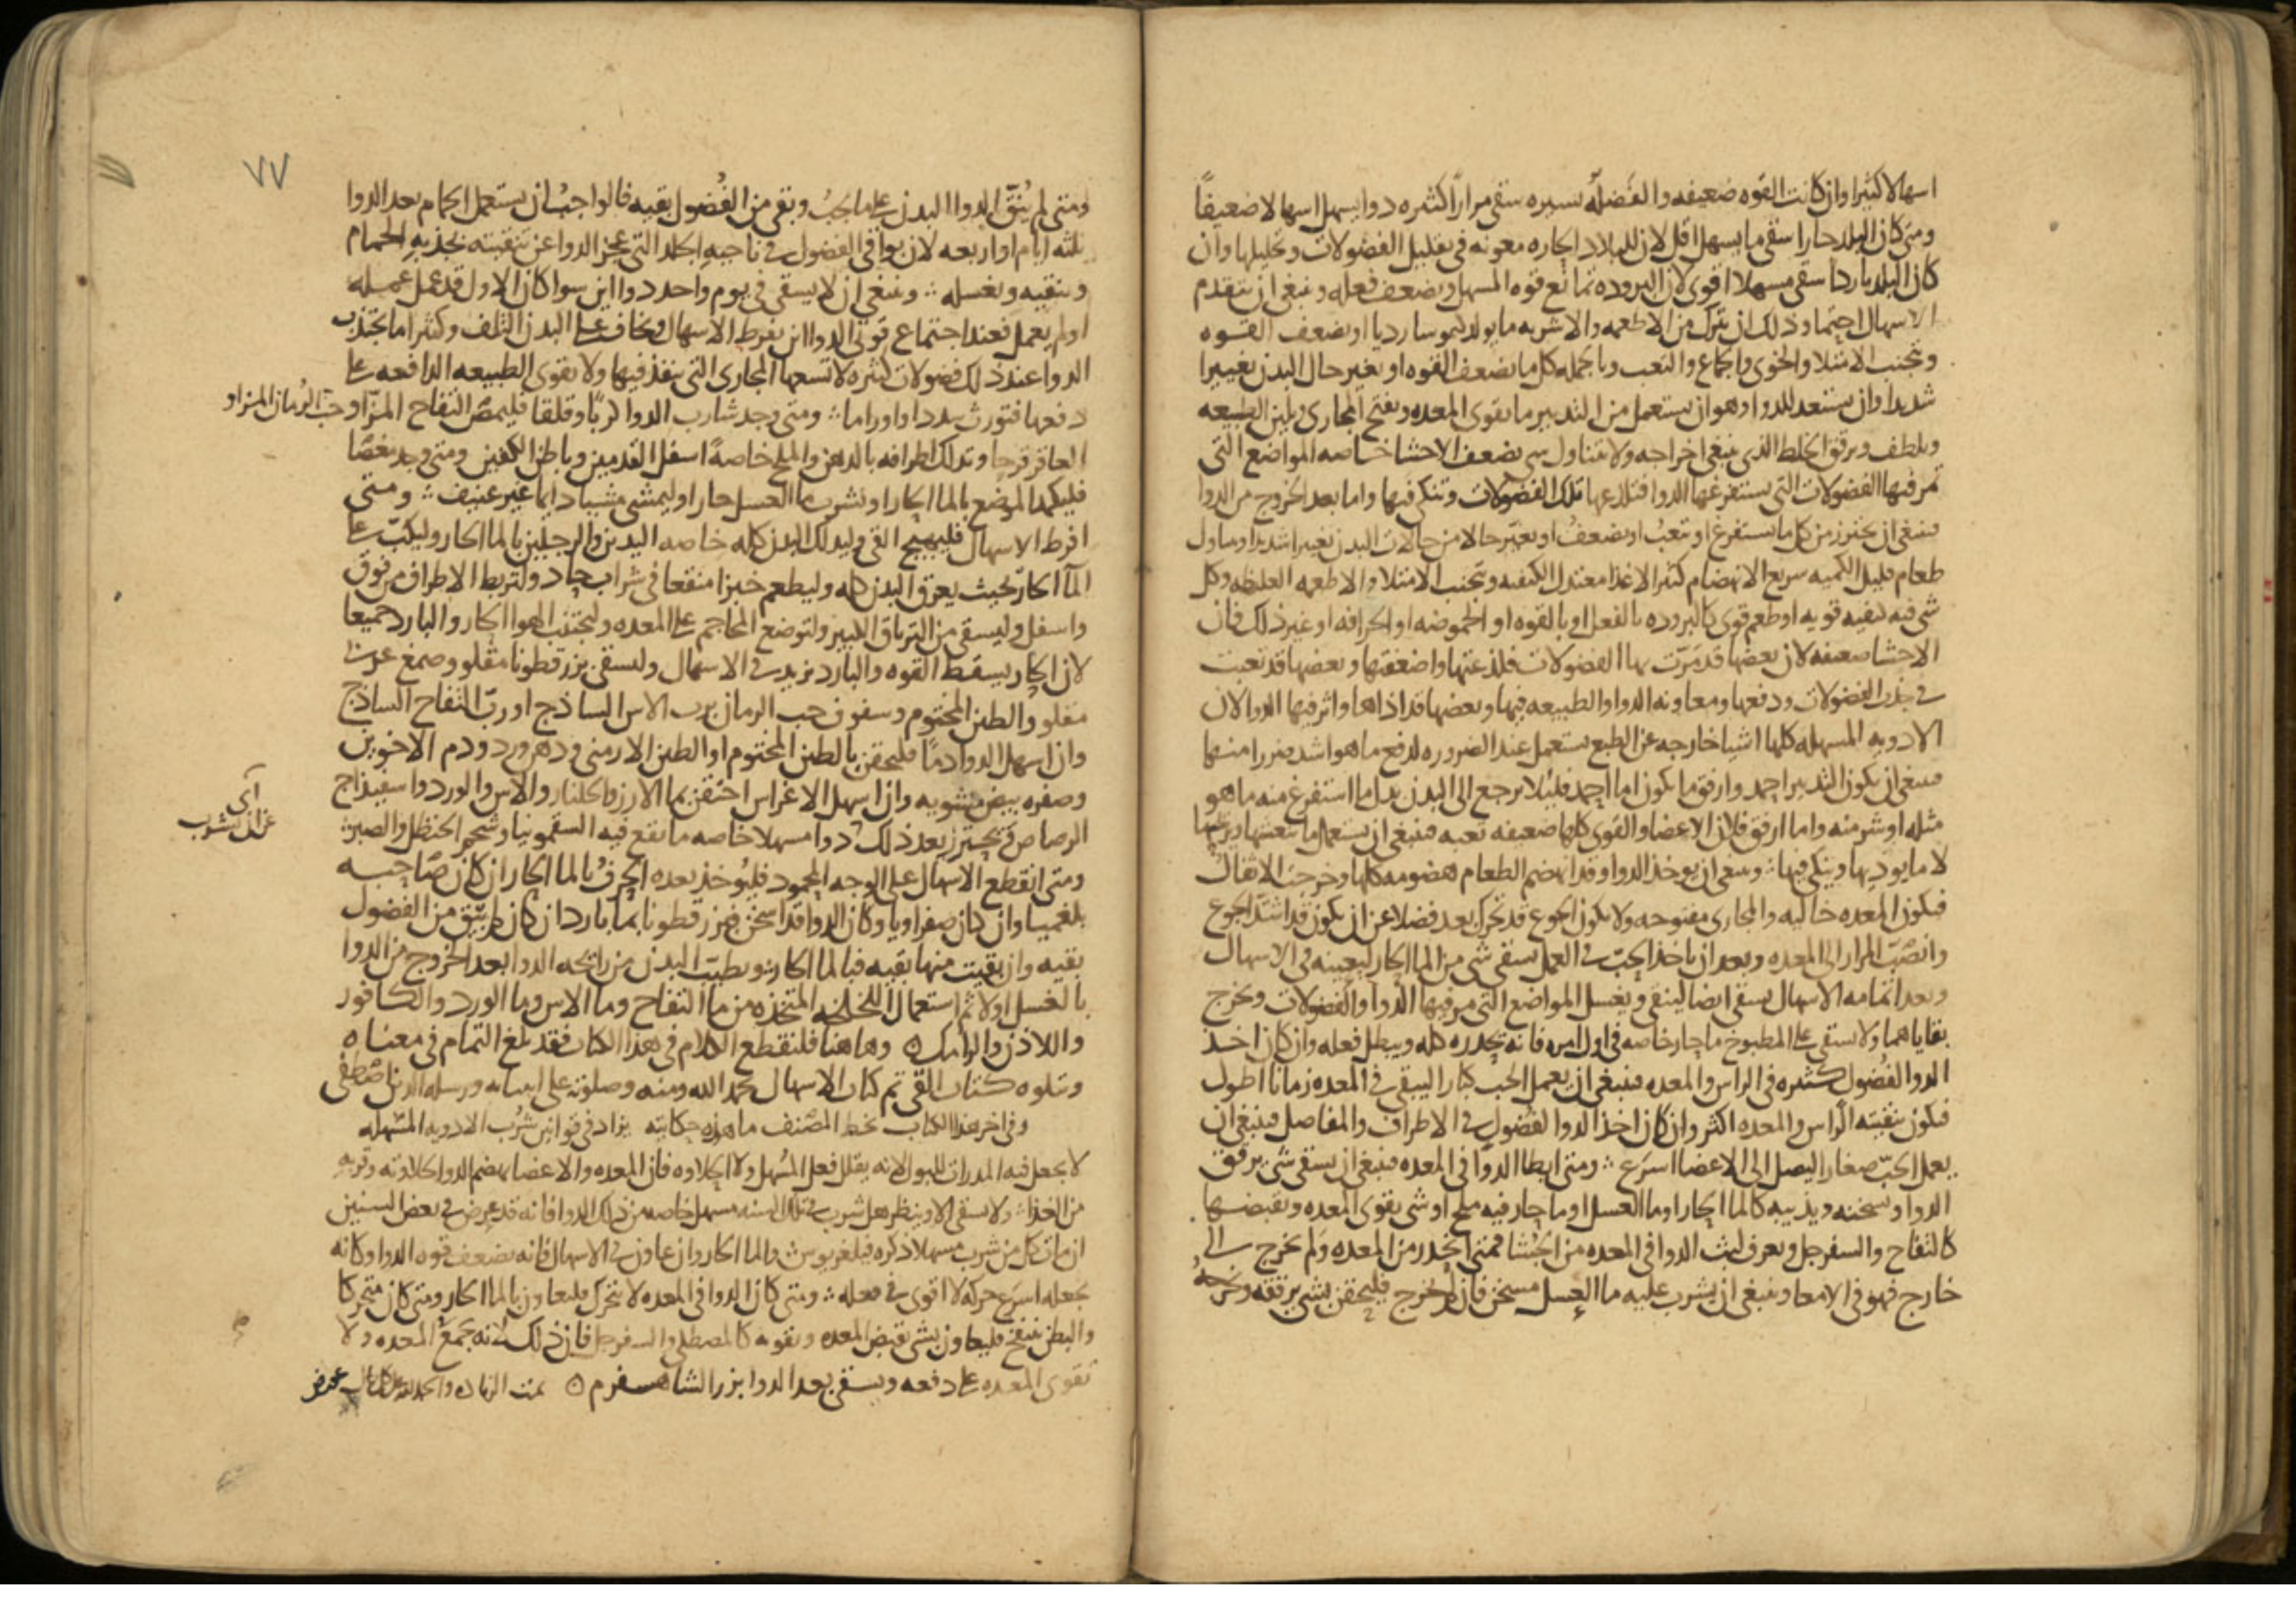 اسهالا كثيرا وان كانت القوه ضعيفه والفضله يسيره سقى مرارا كثيره دوا يسهل اسهالا ضعيفاً
ومتى كان البلد حارا سقى ما يسهل اقل لان للبلاد الحاره معونه فى تقليل الفضولات وتحليلها وان
كان البلد باردا سقى مسهلا اقوى لان البروده تمانع قوه المسهل وتضعف فعله وينبغى ان يتقدم
الاسهال احتما وذلك ان يترك من الاطعمه والاشربه ما يولد كيموسا رديا او يضعف القوه
وتجنب الامتلا والخوى والجماع والتعب وبالجمله كل ما يضعف القوه او يغير حال البدن تغييرا
شديدا وان يستعد للدوا وهو ان يستعمل من التدبير ما يقوى المعده ويفتح المجارى ويلين الطبيعه
ويلطف ويرقق الخلط الذى ينبغى اخراجه ولا يتناول شى يضعف الاحشا خاصه المواضع التى
تمر فيها الفضولات التى يستفرغها الدوا فتلذعها تلك الفضولات وتنكى فيها واما بعد الخروج من الدوا
فينبغى ان يحترز من كل ما يستفرغ او يتعب او يضعف او يغير حالا من حالات البدن تغييرا شديدا ويتناول
طعام قليل الكميه سريع الانهضام كثير الاغذا معتدل الكيفيه وتجنب الامتلا والاطعمه الغليظه وكل
شى فيه كيفيه قويه او طعم قوى كالبروده بالفعل او بالقوه او الحموضه او الحرافه او غير ذلك فان
الاحشا ضعيفه لان بعضها قد مرّت بها الفضولات فلذعتها واضعفتها وبعضها قد تعبت
فى جذب الفضولات ودفعها ومعاونه الدوا والطبيعه فيها وبعضها قد اذاها واثر فيها الدوا لان
الادويه المسهله كلها اشيا خارجه عن الطبع يستعمل عند الضروره لدفع ما هو اشد ضررا منها
فينبغى ان يكون التدبير احمد وارفق ما يكون اما احمد فليلا يرجع الى البدن بدل ما استفرغ منه ما هو
مثله او شر منه واما ارفق فلان الاعضا والقوى كلها ضعيفه تعبه فينبغى ان يستعمل ما ينعشها ويريحها
لا ما يوديها وينكى فيها ؞ وينبغى ان يوخذ الدوا وقد انهضم الطعام هضومه كلها وخرجت الاثقال
فيكون المعده خاليه والمجارى مفتوحه ولا يكون الجوع قد تحرك بعد فضلا عن ان يكون قد اشتد الجوع
وانصبّ المرار الى المعده وبعد ان ياخذ الحب فى العمل يسقى شى من الما الحار ليعينه فى الاسهال
وبعد اتمامه الاسهال يسقى ايضا لينقى ويغسل المواضع التى مر فيها الدوا والفضولات ويخرج
بقاياهما ولا يسقى على المطبوخ ما حار خاصه فى اول امره فانه يحدره كله ويبطل فعله وان كان اخذ
الدوا لفضول كثيره فى الراس والمعده فينبغى ان يعمل الحب كبارا ليبقى فى المعده زمانا اطول
فيكون تنقيته الراس والمعده اكثر وان كان اخذ الدوا لفضول فى الاطراف والمفاصل فينبغى ان
يعمل الحب صغارا ليصل الى الاعضا اسرع ؞ ومتى ابطا الدوا فى المعده فينبغى ان يسقى شى يرقق
الدوا ويسخنه ويذيبه كالما الحار او ما العسل او ما حار فيه ملح او شى يقوى المعده ويقبضها
كالتفاح والسفرجل ويعرف لبث الدوا فى المعده من الجشا فمتى انحدر من المعده ولم يخرج الى
خارج فهو فى الامعا وينبغى ان يشرب عليه ما العسل مسخن فان لم يخرج فليحقن بشى يرفقه ويخرجه
٧٧
ومتى لم يُنَقّ الدوا البدن على ما يجب وبقى من الفُضول بقيه فالواجب ان يستعمل الحمام بعد الدوا
بثلثه ايام او اربعه لان بواقى الفضول فى ناحيه الجلد التى عجز الدوا عن تنقيته يجذبه الحمام
وينقيه ويغسله ؞ وينبغى ان لا يسقى فى يوم واحد دوا اين سوا كان الاول قد عمل عمله
او لم يعمل فعند اجتماع قوتى الدوا اين يفرط الاسهال ويخاف على البدن التلف وكثيرا ما يجتذب
الدوا عند ذلك فضولات كثيره لا تسعها المجارى التى ينفذ فيها ولا يقوى الطبيعه الدافعه على
دفعها فتورث سددا واوراما ؞ ومتى وجد شارب الدوا كربا وقلقا فليمص التفاح المز او حب الرمان المز او
العاقر قرحا ويدلك اطرافه بالدهن والملح خاصةً اسفل القدمين وباطن الكفين ومتى وجد مغصا
فليكمد الموضع بالما الحار او يشرب ما العسل حارا وليمشى مشيا دايما غير عنيف ؞ ومتى
افرط الاسهال فليهيج القى وليدلك البدن كله خاصه اليدين والرجلين بالما الحار وليكبّ على
الما الحار بحيث يعرق البدن كله وليطعم خبزا منقعا فى شراب حاد ولتربط الاطراف من فوق
واسفل وليسقى من الترياق الكبير ولتوضع المحاجم على المعده وليجتنب الهوا الحار والبارد جميعا
لان الحار يسقط القوه والبارد يزيد فى الاسهال وليسقى بزرقطونا مقلو وصمغ عربى
مقلو والطين المختوم وسفوف حب الرمان برب الاس الساذج او ربّ التفاح الساذج
وان اسهل الدوا دمًا فليحقن بالطين المختوم او الطين الارمنى ودهن ورد ودم الاخوين
وصفره بيض مشويه وان اسهل الاغراس احتقن بما الارز والجلنار والاس والورد واسفيذاج
الرصاص ويحترز بعد ذلك دوا مسهلا خاصه ما يقع فيه السقمونيا وشحم الحنظل والصبر ؞
اى
عن ان يشرب
ومتى انقطع الاسهال على الوجه المحمود فليُوخذ بعده الحرف بالما الحار ان كان صاحبه
بلغميا وان كان صفراويا وكان الدوا قد اسخن فبزرقطونا بما بارد ان كان لم يبق من الفضول
بقيه وان بقيت منها بقيه فبالما الحار ويطيب البدن من رائحه الدوا بعد الخروج من الدوا
بالغسل اولا ثم استعمال اللخلخه المتخذه من ما التفاح وما الاس وما الورد والكافور
واللاذن والرامك ٥ وهاهنا فلنقطع الكلام فى هذا الكتاب فقد بلغ التمام فى معناه
ويتلوه كتاب القى تم كتاب الاسهال بحمد الله ومنه وصلوته على انبيائه ورسله الذين اصطفى
وفى اخر هذا الكتاب بخط المصنف ما هذه حكايته يزاد فى قوانين شرب الادويه المسهله
لا يجعل فيه المدرات للبول لانه يقلل فعل المسهل ولا الحلاوه فان المعده والاعضا يهضم الدوا لحلاوته وقربه
من الغذا ؞ ولا يسقى الا وينظر هل شرب فى تلك السنه مسهل خاصه من ذلك الدوا فانه قد عرض فى بعض السنين
ان مات كل من شرب مسهلا ذكره فيلغريوس ؞ والما الحار وان عاون فى الاسهال فانه يضعف قوه الدوا وكانه
يجعله اسرع حركه لا اقوى فى فعله ؞ ومتى كان الدوا فى المعده لا يتحرك فليعاون بالما الحار ومتى كان متحركا
والبطن ينتفخ فليعاون بشى يقبض المعده ويقويه كالمصطكى والسفرجل فان ذلك لانه يجمع المعده ولا
تقوى المعده على دفعه ويسقى بعد الدوا بزر الشاهسفرم ٥ تمت الزياده والحمد لله على كل حال
عورض